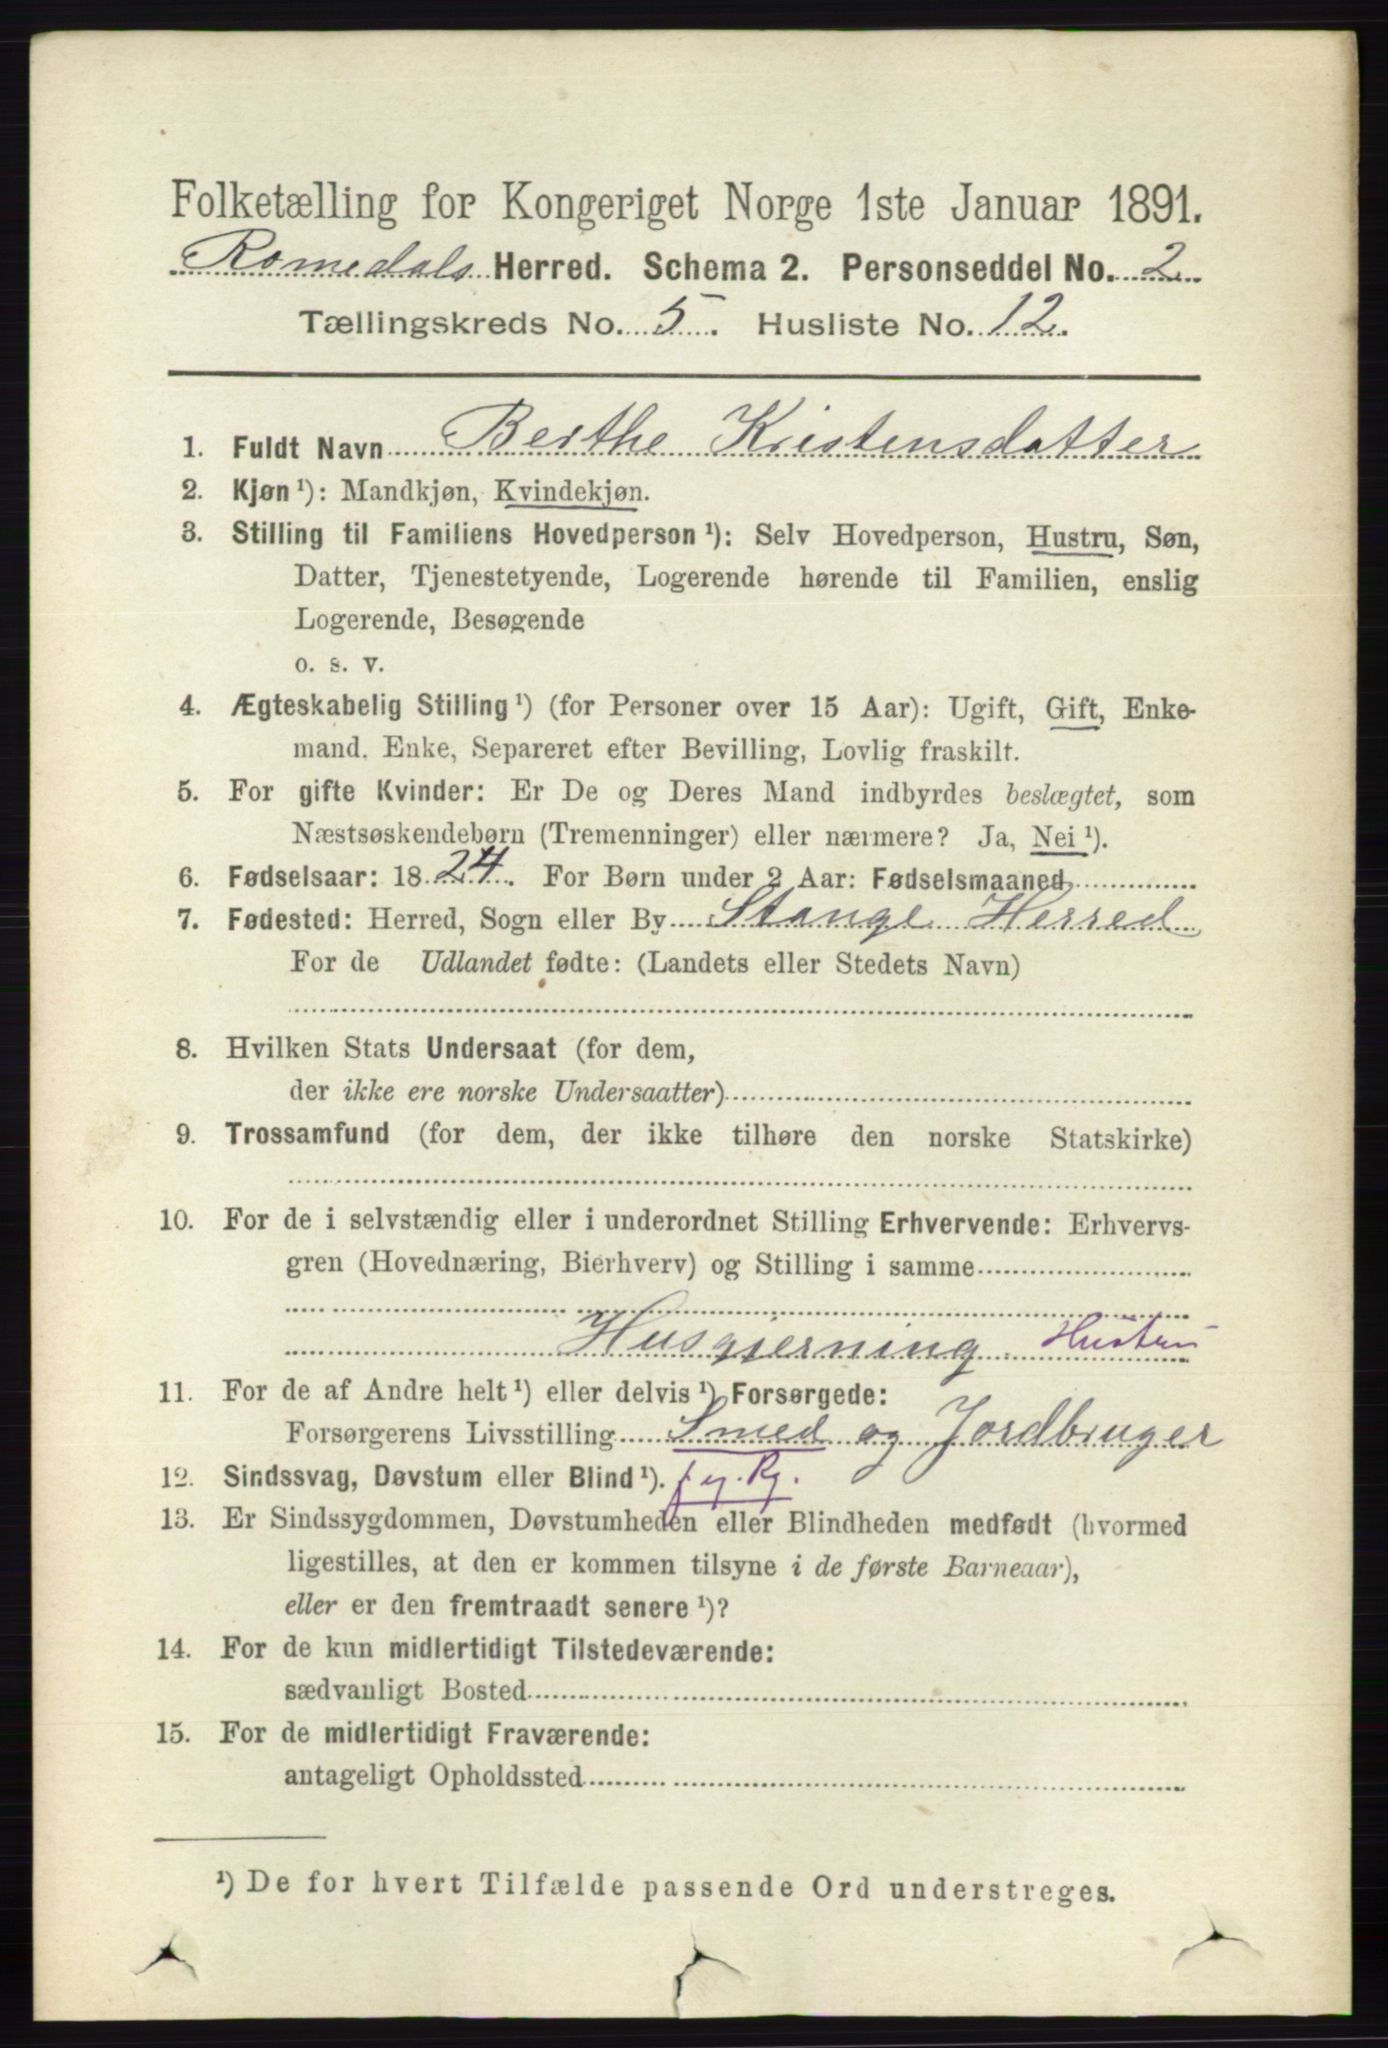 Folketælling for Kongeriget Norge 1ste Januar 1891.
Romedals Herred. Schema 2. Personseddel No. 2
Tællingskreds No. 5. Husliste No. 12.
1. Fuldt Navn Berthe Kristensdatter
2. Kjøn ¹): Mandkjøn, Kvindekjøn.
3. Stilling til Familiens Hovedperson ¹): Selv Hovedperson, Hustru, Søn,
Datter, Tjenestetyende, Logerende hørende til Familien, enslig
Logerende, Besøgende
o. s. v.
4. Ægteskabelig Stilling ¹) (for Personer over 15 Aar): Ugift, Gift, Enke-
mand. Enke, Separeret efter Bevilling, Lovlig fraskilt.
5. For gifte Kvinder: Er De og Deres Mand indbyrdes beslægtet, som
Næstsøskendebørn (Tremenninger) eller nærmere? Ja, Nei ¹).
6. Fødselsaar: 1824. For Børn under 2 Aar: Fødselsmaaned
7. Fødested: Herred, Sogn eller By Stange Herred
For de Udlandet fødte: (Landets eller Stedets Navn)
8. Hvilken Stats Undersaat (for dem,
der ikke ere norske Undersaatter)
9. Trossamfund (for dem, der ikke tilhøre den norske Statskirke)
10. For de i selvstændig eller i underordnet Stilling Erhvervende: Erhvervs-
gren (Hovednæring, Bierhverv) og Stilling i samme
Husgjerning Hustru
11. For de af Andre helt ¹) eller delvis ¹) Forsørgede:
Forsørgerens Livsstilling Smed og Jordbruger
12. Sindssvag, Døvstum eller Blind ¹).
13. Er Sindssygdommen, Døvstumheden eller Blindheden medfødt (hvormed
ligestilles, at den er kommen tilsyne i de første Barneaar),
eller er den fremtraadt senere ¹)?
14. For de kun midlertidigt Tilstedeværende:
sædvanligt Bosted
15. For de midlertidigt Fraværende:
antageligt Opholdssted
¹) De for hvert Tilfælde passende Ord understreges.